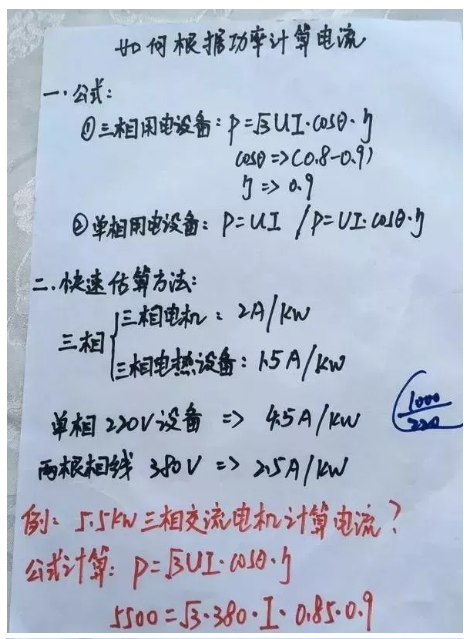 如何根据功率计算电流
一.公式:
①三相用电设备: P=√3UI·cosθ·η
cosθ=>(0.8-0.9)
η=>0.9
②单相用电设备: P=UI /P=UI·cosθ·η
二.快速估算方法:
三相
三相电机: 2A/KW
三相电热设备: 1.5A/KW
单相220V设备 => 4.5A/KW
1000
220
两根相线 380V => 2.5A/KW
例: 5.5KW三相交流电机计算电流?
公式计算: P=√3UI·cosθ·η
5500=√3·380·I·0.85·0.9